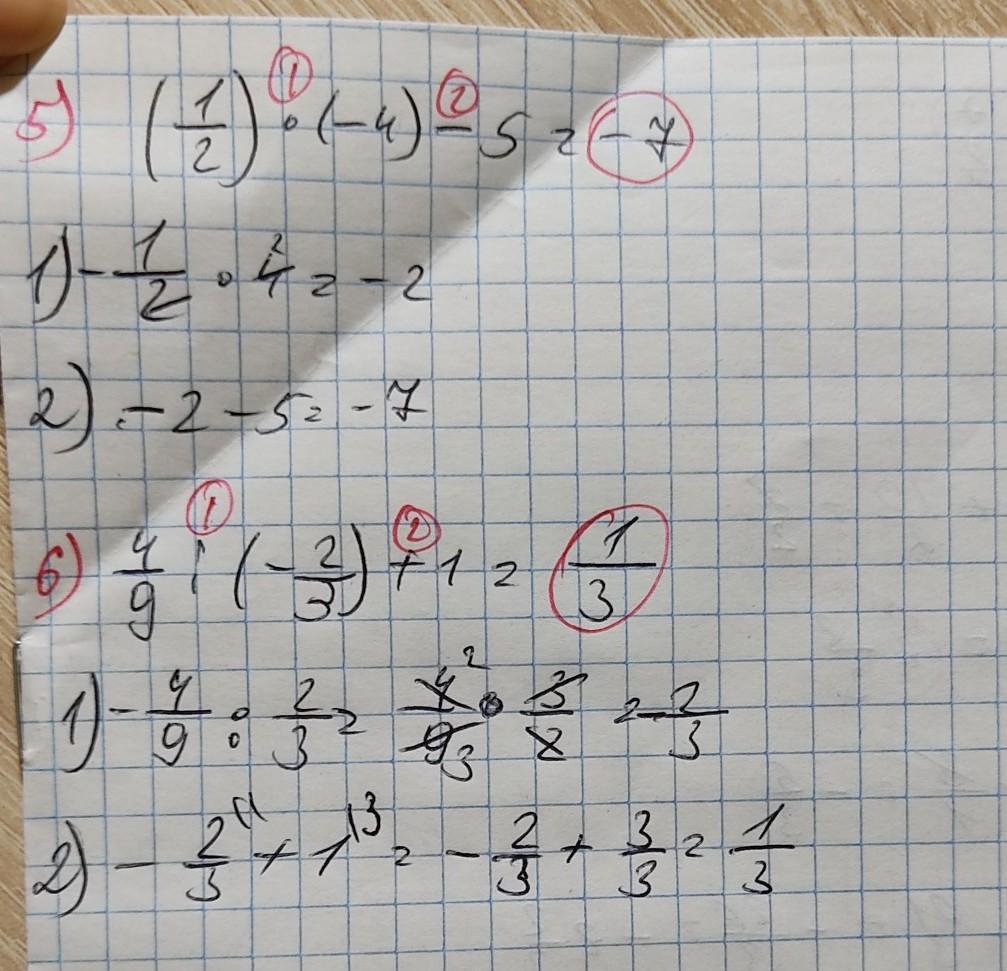 5) (1/2) ① · (-4) ② - 5 = -7
1) - 1/2 · 4² = -2
2) -2 - 5 = -7
6) 4/9 ① : (-2/3) ② + 1 = 1/3
1) - 4/9 : 2/3 = 4²/9₃ · 3/2 = - 2/3
2) - 2/3 \1 + 1 \3 = - 2/3 + 3/3 = 1/3